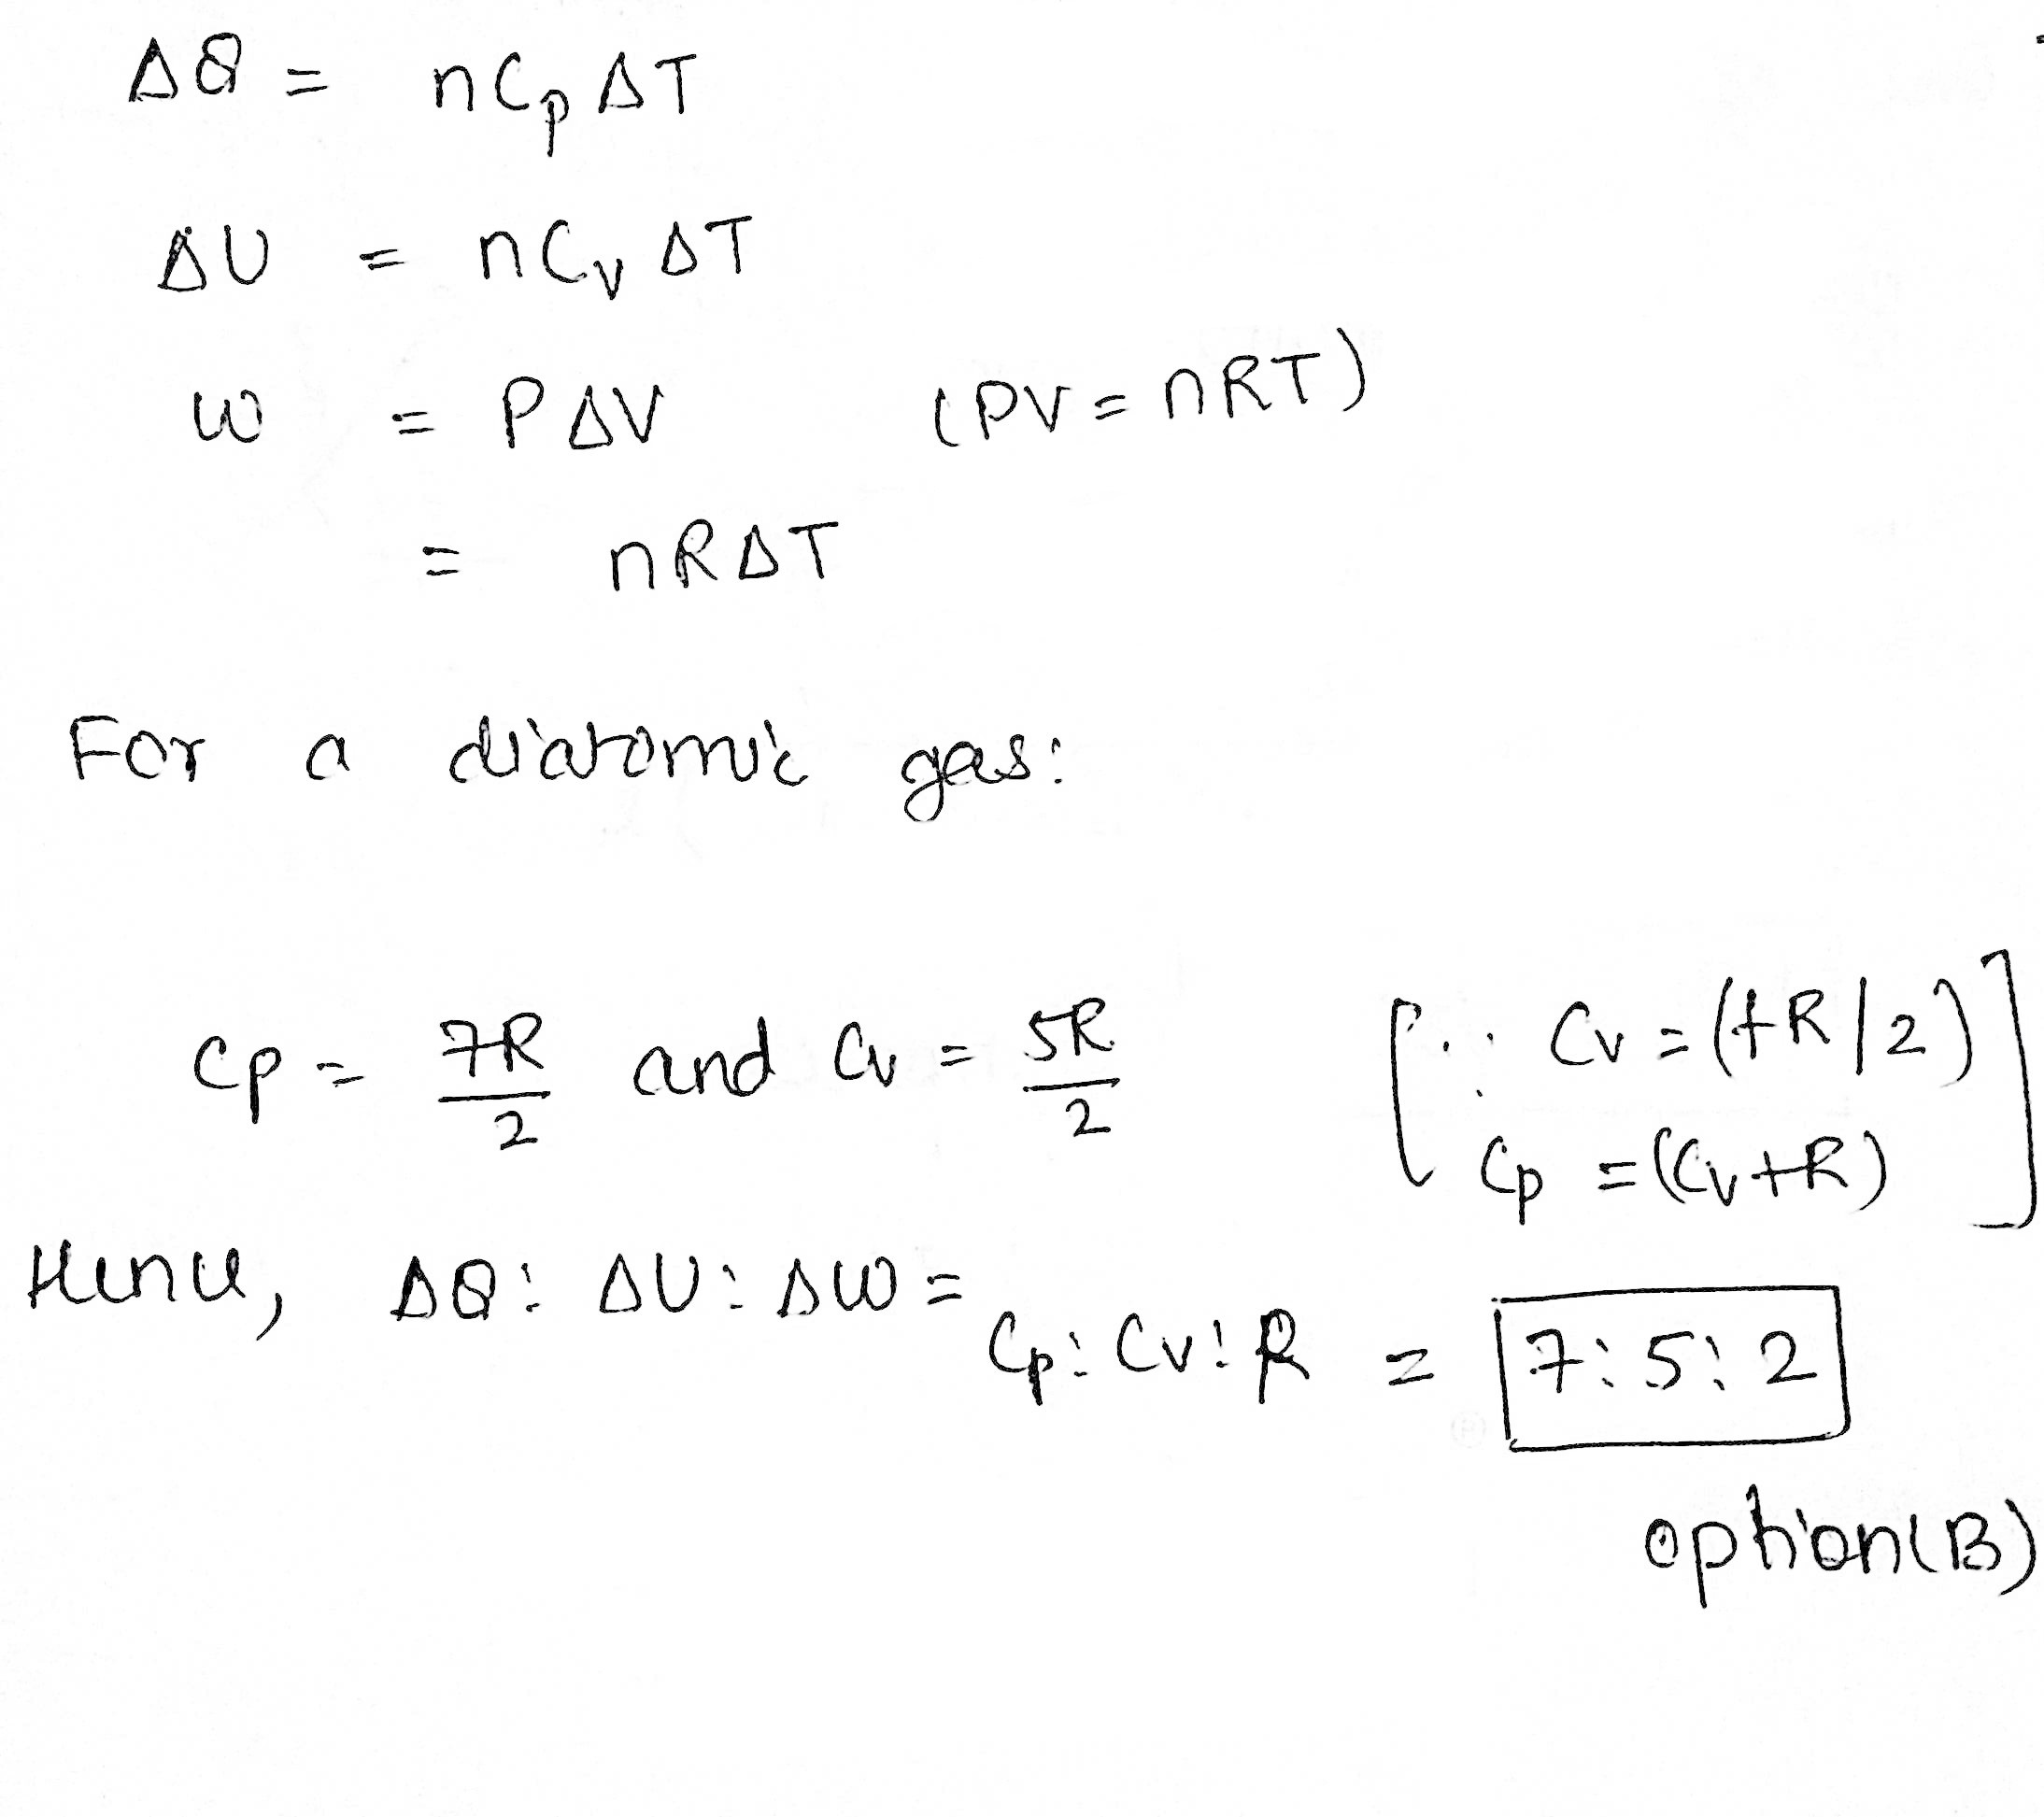 ΔQ = nCp ΔT
ΔU = nCv ΔT
W = PΔV (PV = nRT)
= nRΔT
For a diatomic gas:
Cp = 7R/2 and Cv = 5R/2 [∵ Cv = (fR/2)
Cp = (Cv+R)]
Hence, ΔQ : ΔU : ΔW = Cp : Cv : R = 7:5:2
option(B)